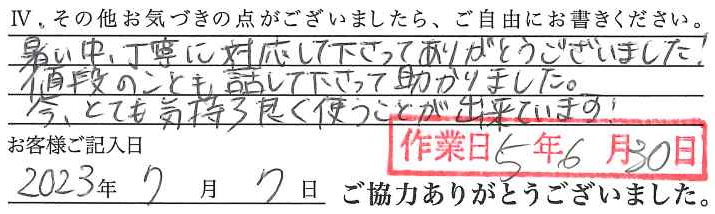 Ⅳ、その他お気づきの点がございましたら、ご自由にお書きください。
暑い中、丁寧に対応して下さってありがとうございました!
値段のことも、話して下さって助かりました。
今、とても気持ち良く使うことが出来ています!
お客様ご記入日
作業日 5年6月30日
2023年 7月 7日 ご協力ありがとうございました。